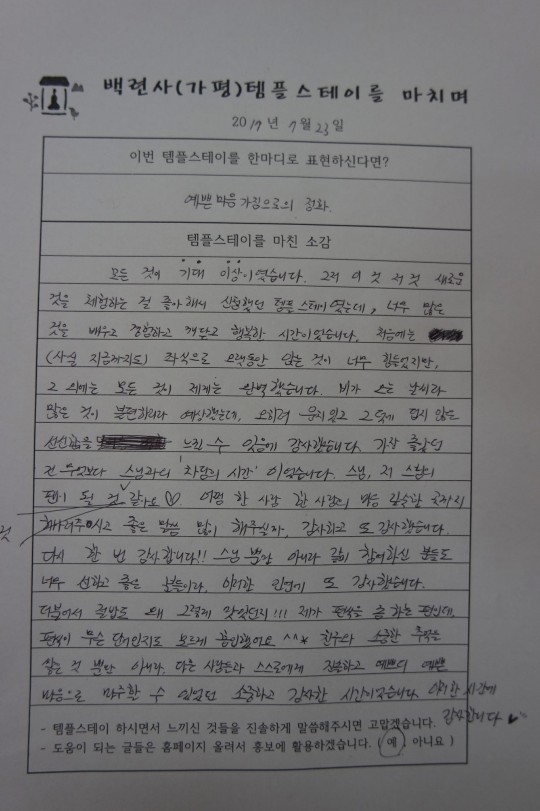 백련사(가평)템플스테이를 마치며
2017년 7월 23일
이번 템플스테이를 한마디로 표현하신다면?
예쁜 마음가짐으로의 정화.
템플스테이를 마친 소감
모든 것이 기대 이상이었습니다. 그저 이것 저것 새로운
것을 체험하는 걸 좋아해서 신청했던 템플스테이였는데, 너무 많은
것을 배우고 경험하고 깨닫고 행복한 시간이었습니다. 처음에는
(사실 지금까지도) 좌식으로 오랫동안 앉는 것이 너무 힘들었지만,
그 외에는 모든 것이 제게는 완벽했습니다. 비가 오는 날씨라
많은 것이 불편하리라 예상했는데, 오히려 운치있고 그 덕에 덥지 않은
선선함을 느낄 수 있음에 감사했습니다. 가장 좋았던
건 무엇보다 스님과의 '차담의 시간' 이었습니다. 스님, 저 스님의
팬이 될 것 같아요♡ 어쩜 한 사람 한 사람의 마음 깊숙한 곳까지
헤아려주시고 좋은 말씀 많이 해주실까, 감사하고 또 감사했습니다.
다시 한 번 감사합니다!! 스님 뿐만 아니라 같이 참여하신 분들도
너무 선하고 좋은 분들이라, 이러한 인연에 또 감사했습니다.
더불어서 절밥도 왜 그렇게 맛있던지!!! 제가 편식을 좀 하는 편인데,
편식이 무슨 단어인지도 모르게 흡입했어요 ^^* 친구와 소중한 추억을
쌓는 것 뿐만 아니라, 다른 사람들과 스스로에게 진솔하고 예쁘디 예쁜
마음으로 마주할 수 있었던 소중하고 감사한 시간이었습니다 이러한 시간에
감사합니다 ♥
- 템플스테이 하시면서 느끼신 것들을 진솔하게 말씀해주시면 고맙겠습니다.
- 도움이 되는 글들은 홈페이지 올려서 홍보에 활용하겠습니다. ( 예 아니요 )